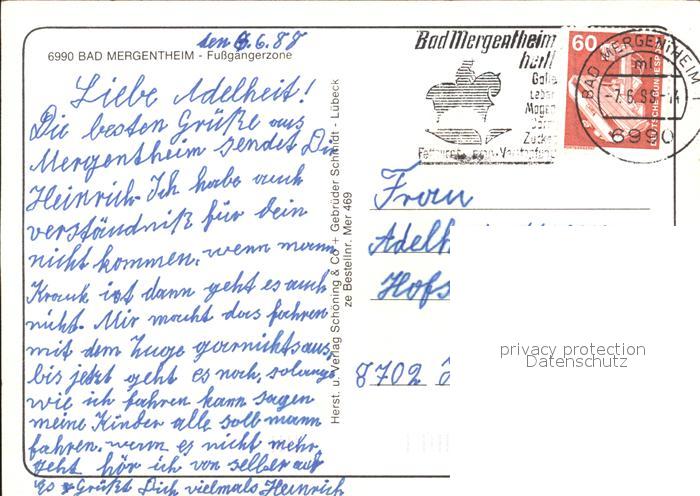 den 6.6.88
6990 BAD MERGENTHEIM - Fußgängerzone
Liebe Adelheit!
Die besten Grüße aus
Mergentheim sendet Dir
Heinrich. Ich habe auch
verständniß für Dein
nicht kommen, wenn mann
Krank ist dann geht es auch
nicht. Mir macht das fahren
mit dem Zuge garnichts aus,
bis jetzt geht es noch, solange
wie ich fahren kann sagen
meine Kinder alle soll mann
fahren. wenn es nicht mehr
geht hör ich von selber auf
Es Grüßt Dich vielmals Heinrich
Herst. u. Verlag Schöning & Co + Gebrüder Schmidt - Lübeck
ze Bestellnr. Mer 469
Bad Mergentheim
heilt
Galle
Leber
Magen
Darm
Zucker
60
DEUTSCHE BUNDESPOST
BAD MERGENTHEIM 1
-7.6.88-14
6990
Frau
Hofs
8702
privacy protection
Datenschutz